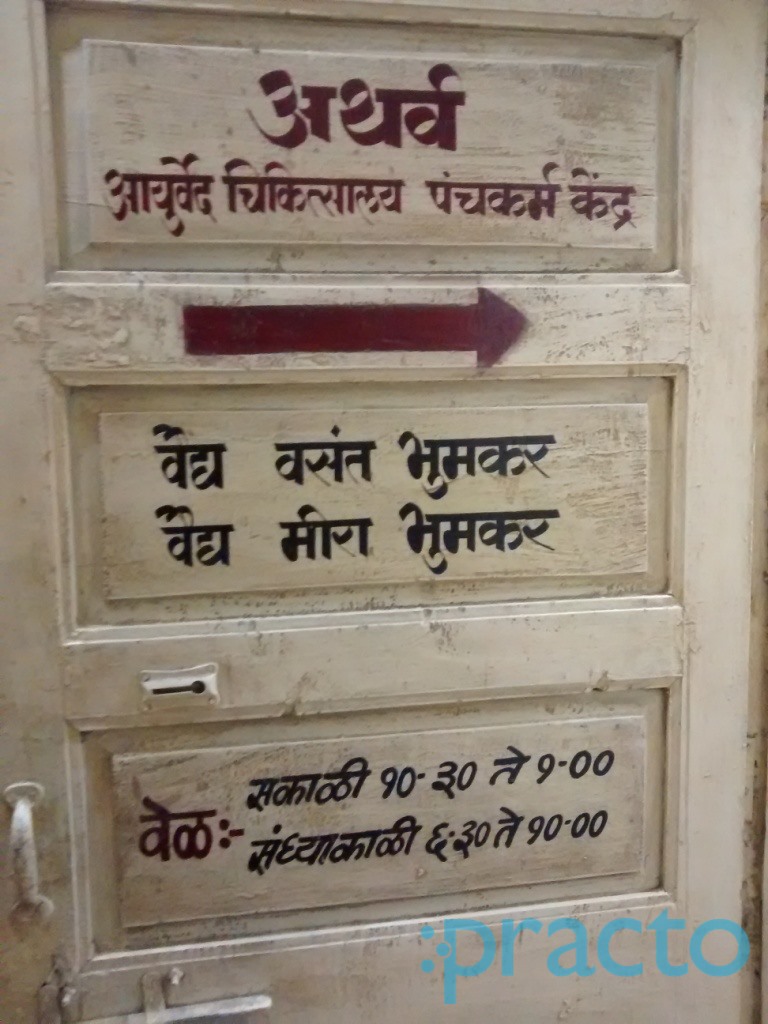 अथर्व
आयुर्वेद चिकित्सालय पंचकर्म केंद्र
वैद्य वसंत भुमकर
वैद्य मीरा भुमकर
वेळ:- सकाळी १०-३० ते १-००
संध्याकाळी ६-३० ते १०-००
:practo